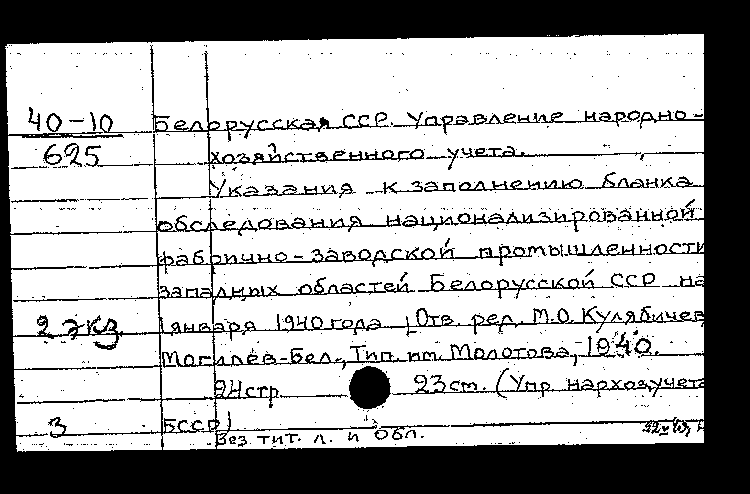 40-10 Белорусская ССР. Управление народно-
625 хозяйственного учета.
Указания к заполнению бланка
обследования национализированной
фабрично-заводской промышленности
западных областей Белорусской ССР на
2 экз. 1 января 1940 года [Отв. ред. М.О. Кулябичев
Могилев-Бел., Тип. им. Молотова, 1940.
24 стр. 23 см. (Упр. нархозучета
3 БССР)
Без тит. л. и обл.